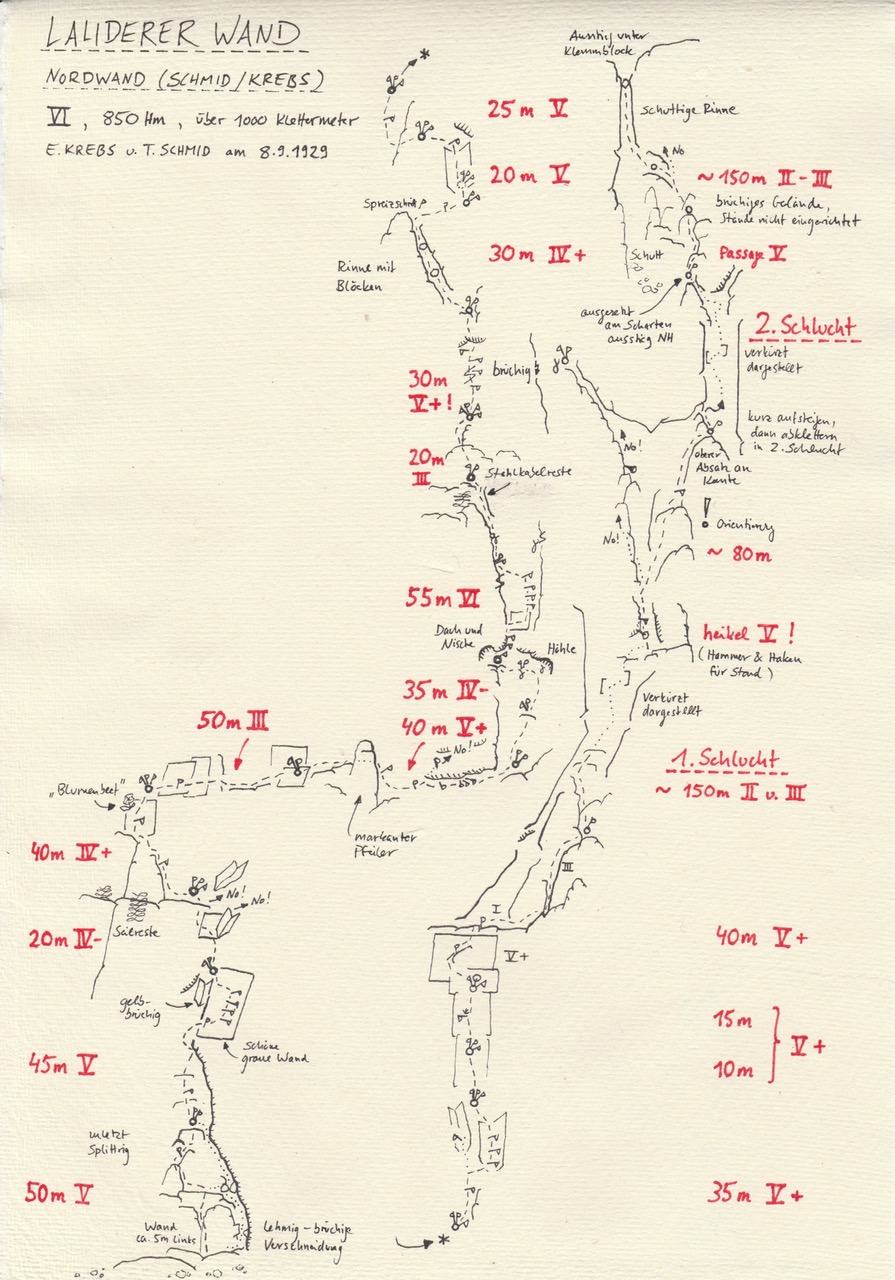 LALIDERER WAND
NORDWAND (SCHMID/KREBS)
VI, 850 Hm, über 1000 Klettermeter
E. KREBS u. T. SCHMID am 8.9.1929
*
25m V
20m V
Spreizschritt
30m IV+
Rinne mit
Blöcken
30m
V+!
brüchig
20m
III
Stahlkabelreste
55m VI
Dach und
Nische
Höhle
35m IV-
40m V+
No!
50m III
"Blumenbeet"
markanter
Pfeiler
40m IV+
No!
No!
Seilreste
20m IV-
gelb-
brüchig
Schöne
graue Wand
45m V
zuletzt
Splittrig
50m V
Wand
ca. 5m links
Lehmig-brüchige
Verschneidung
Ausstieg unter
Klemmblock
schuttige Rinne
No
~ 150m II-III
brüchiges Gelände,
Stände nicht eingerichtet
Schutt
Passage V
ausgesetzt
am Scharten
ausstieg NH
2. Schlucht
verkürzt
dargestellt
kurz aufsteigen,
dann abklettern
in 2. Schlucht
No!
oberer
Absatz an
Kante
! Orientierung
No!
~ 80m
heikel V!
(Hammer & Haken
für Stand)
verkürzt
dargestellt
1. Schlucht
~ 150m II u. III
III
I
V+
40m V+
15m
V+
10m
35m V+
*